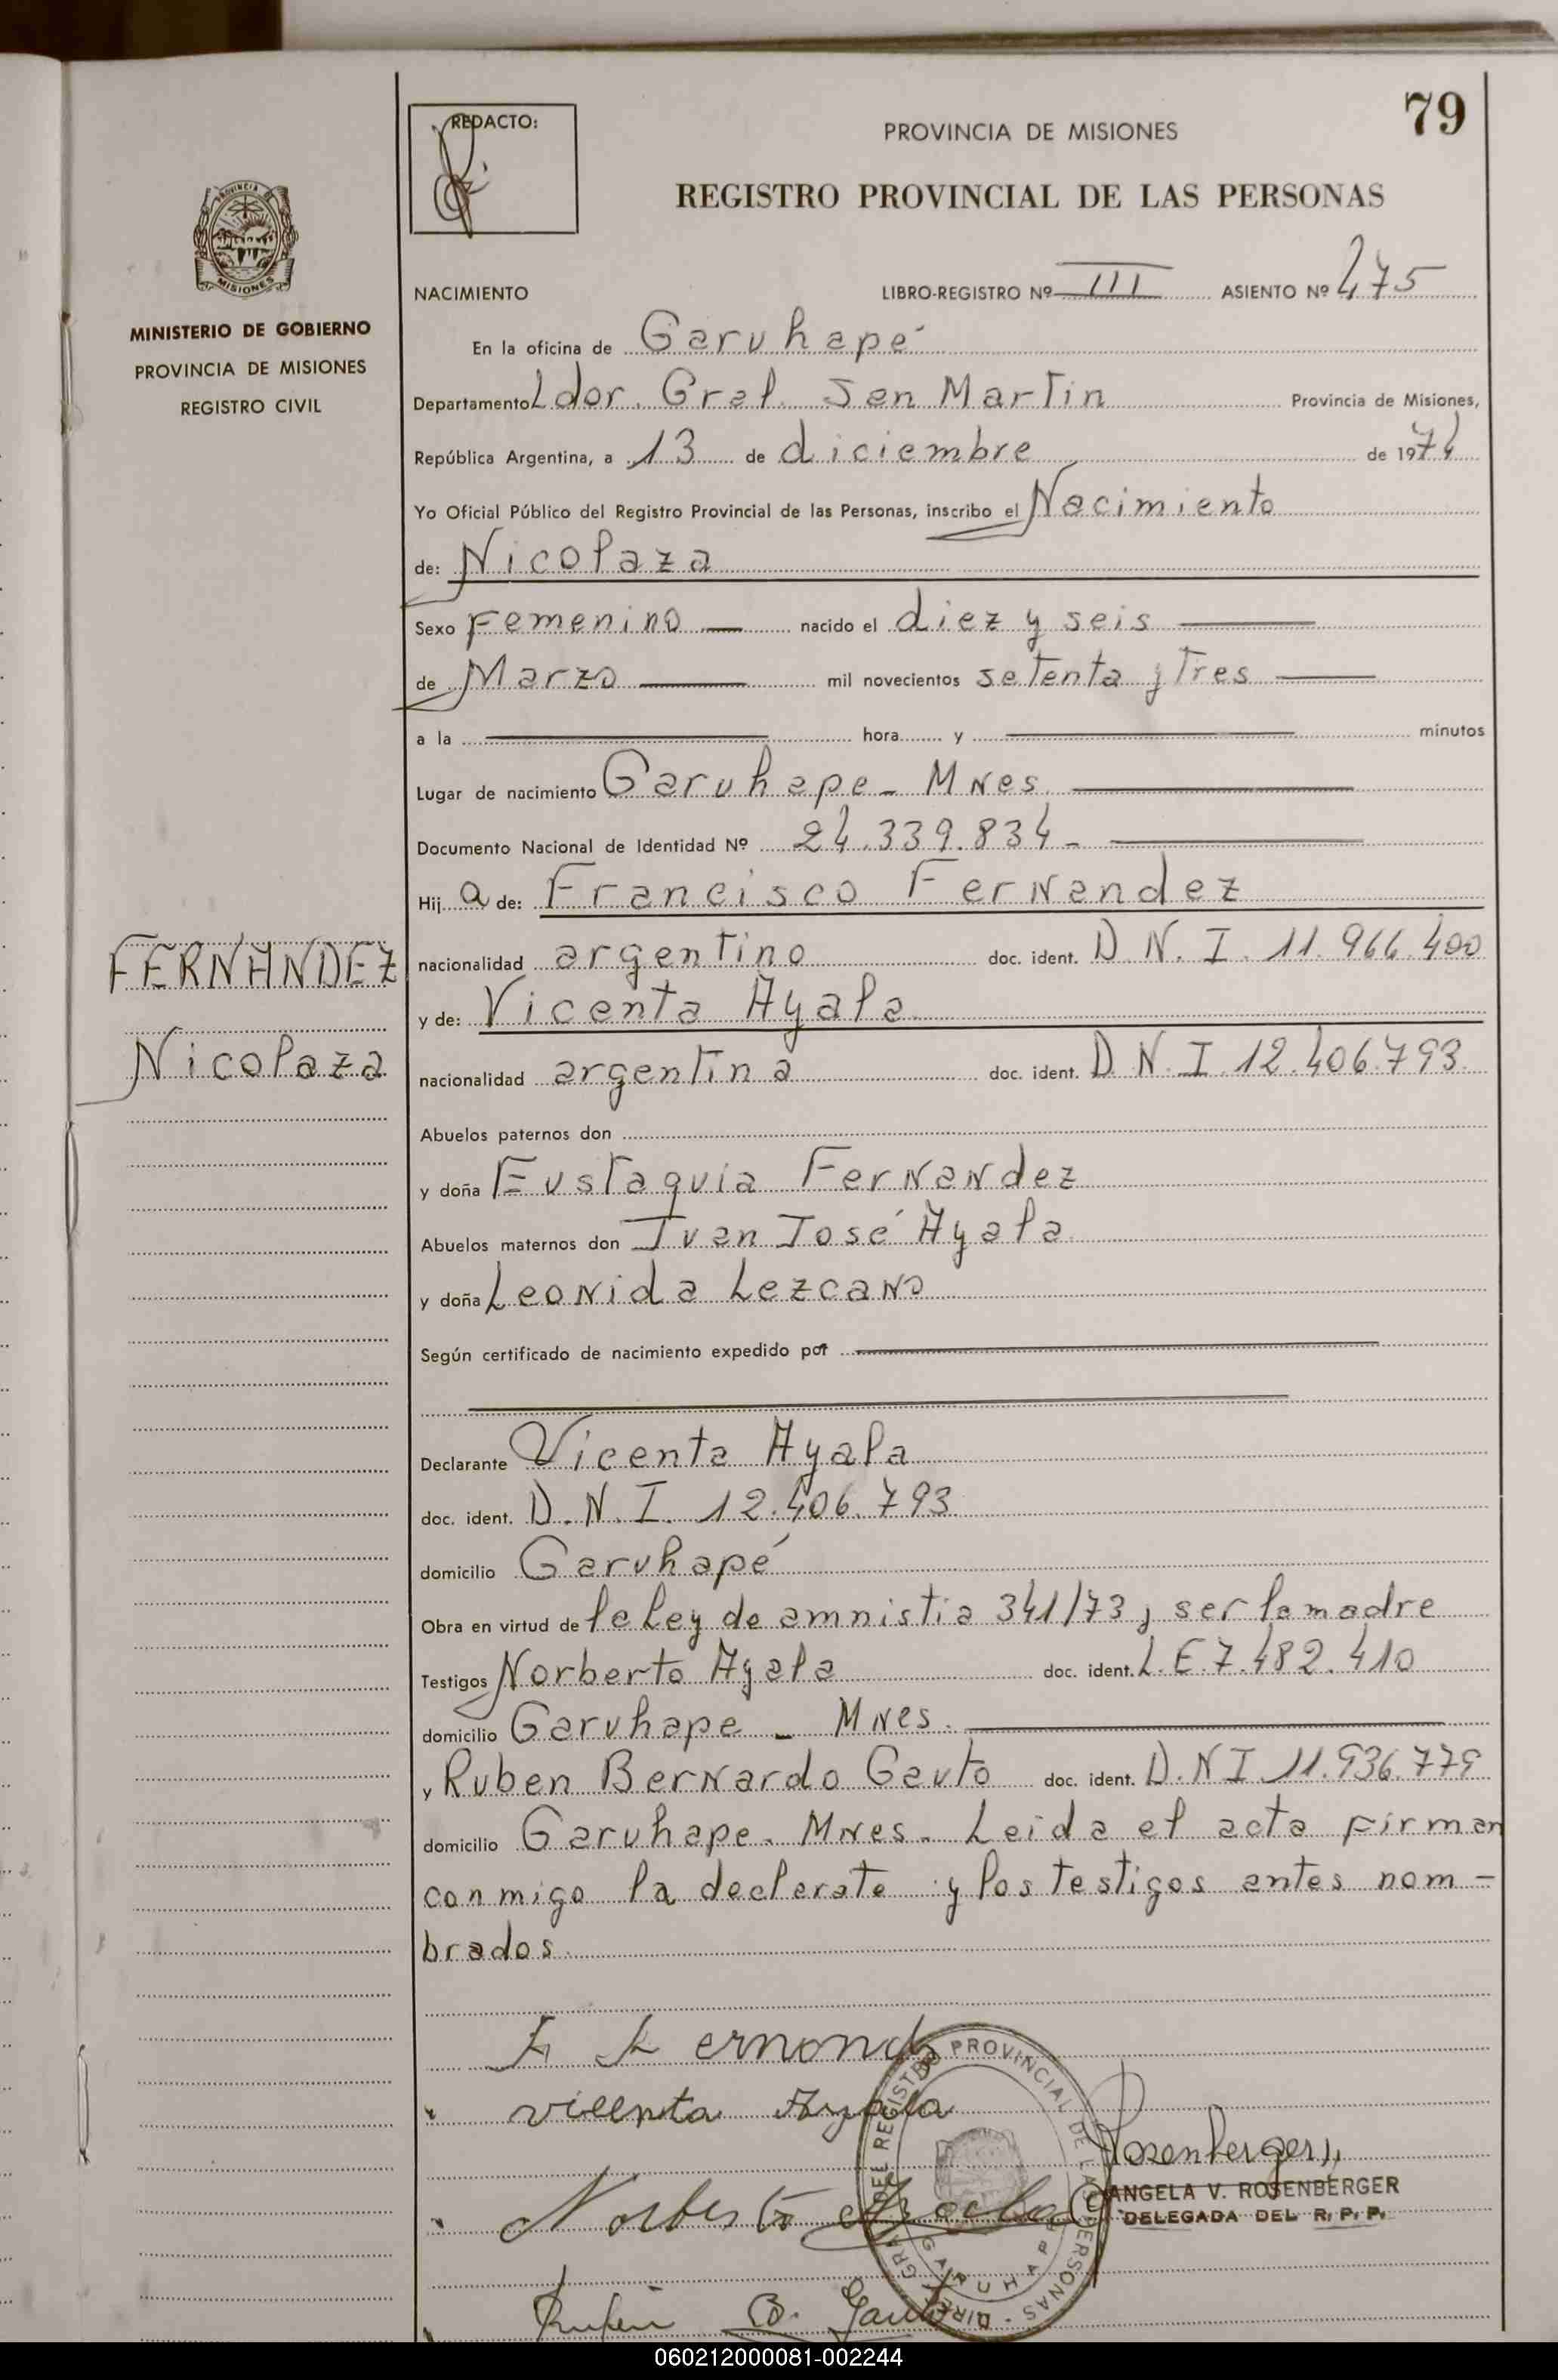 79
REDACTO:
PROVINCIA DE MISIONES
REGISTRO PROVINCIAL DE LAS PERSONAS
MISIONES
MINISTERIO DE GOBIERNO
PROVINCIA DE MISIONES
REGISTRO CIVIL
NACIMIENTO LIBRO-REGISTRO Nº III ASIENTO Nº 475
En la oficina de Garuhapé
Departamento Ldor. Gral. San Martin Provincia de Misiones,
República Argentina, a 13 de diciembre de 1974
Yo Oficial Público del Registro Provincial de las Personas, inscribo el Nacimiento
de: Nicolaza
Sexo Femenino nacido el diez y seis
de Marzo mil novecientos setenta y Tres
a la hora y minutos
Lugar de nacimiento Garuhape - Mnes.
Documento Nacional de Identidad Nº 24.339.834 -
Hij a de: Francisco Fernandez
FERNANDEZ
nacionalidad argentino doc. ident. D.N.I. 11.966.400
y de: Vicenta Ayala
Nicolaza
nacionalidad argentina doc. ident. D.N.I. 12.406.793.
Abuelos paternos don
y doña Eustaquia Fernandez
Abuelos maternos don Juan José Ayala
y doña Leonida Lezcano
Según certificado de nacimiento expedido por
Declarante Vicenta Ayala
doc. ident. D.N.I. 12.406.793
domicilio Garuhapé
Obra en virtud de la Ley de amnistia 341/73, ser la madre
Testigos Norberto Ayala doc. ident. L.E 7.482.410
domicilio Garuhape - Mnes.
y Ruben Bernardo Gauto doc. ident. D.N I 11.936.779
domicilio Garuhape. Mnes. Leida el acta firman
conmigo la declarate y los testigos antes nom-
brados.
vicenta Ayala
Rosenberger
ANGELA V. ROSENBERGER
DELEGADA DEL R. P. P.
Norberto Ayala
Ruben B. Gauto
060212000081-002244